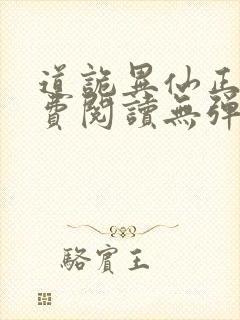 道詭異仙正
費閱讀無彈
駱賓王